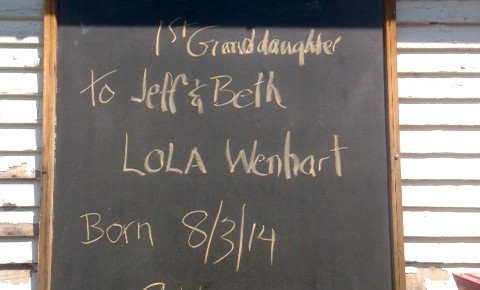 1st Granddaughter
to Jeff & Beth
LOLA Wenhart
Born 8/3/14